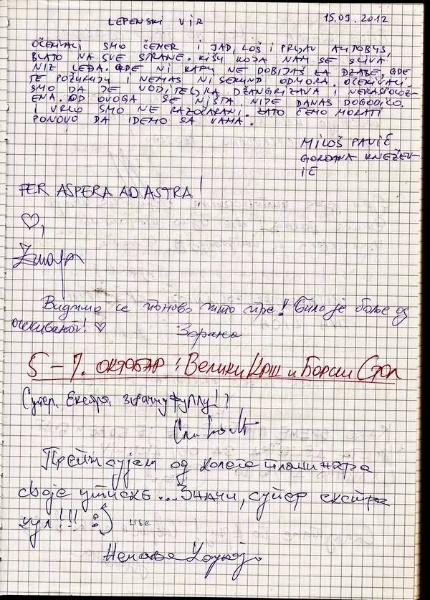 LEPENSKI VIR 15.09.2012
OČEKIVALI SMO ČEMER I JAD, LOŠ I PRLJAV AUTOBUS,
BLATO NA SVE STRANE. KIŠU KOJA NAM SE SLIVA
NIZ LEĐA. GDE NI KAPU NE DOBIJAŠ ZA DŽABE, GDE
TE POŽURUJU I NEMAŠ NI SEKUND ODMORA. OČEKIVALI
SMO DA JE VODITELJKA DŽANGRIZAVA I NERASPOLOŽ-
ENA. OD OVOGA SE NIŠTA NIJE DANAS DOGODILO.
I VRLO SMO NE RAZOČARANI. ZATO ĆEMO MORATI
PONOVO DA IDEMO SA VAMA.
MILOŠ PAVIĆ
GORDANA KNEŽEV-
IĆ
PER ASPERA AD ASTRA!
Видимо се поново што пре! Било је боље од
очекивања! ♡
Зорана
5-7. ОКТОБАР: ВЕЛИКИ КРШ И БОРСКИ СТОЛ
Супер. Екстра.
Преписујем од колега планинара
своје утиске... Значи, супер екстра
кул!!! :)
Ненад